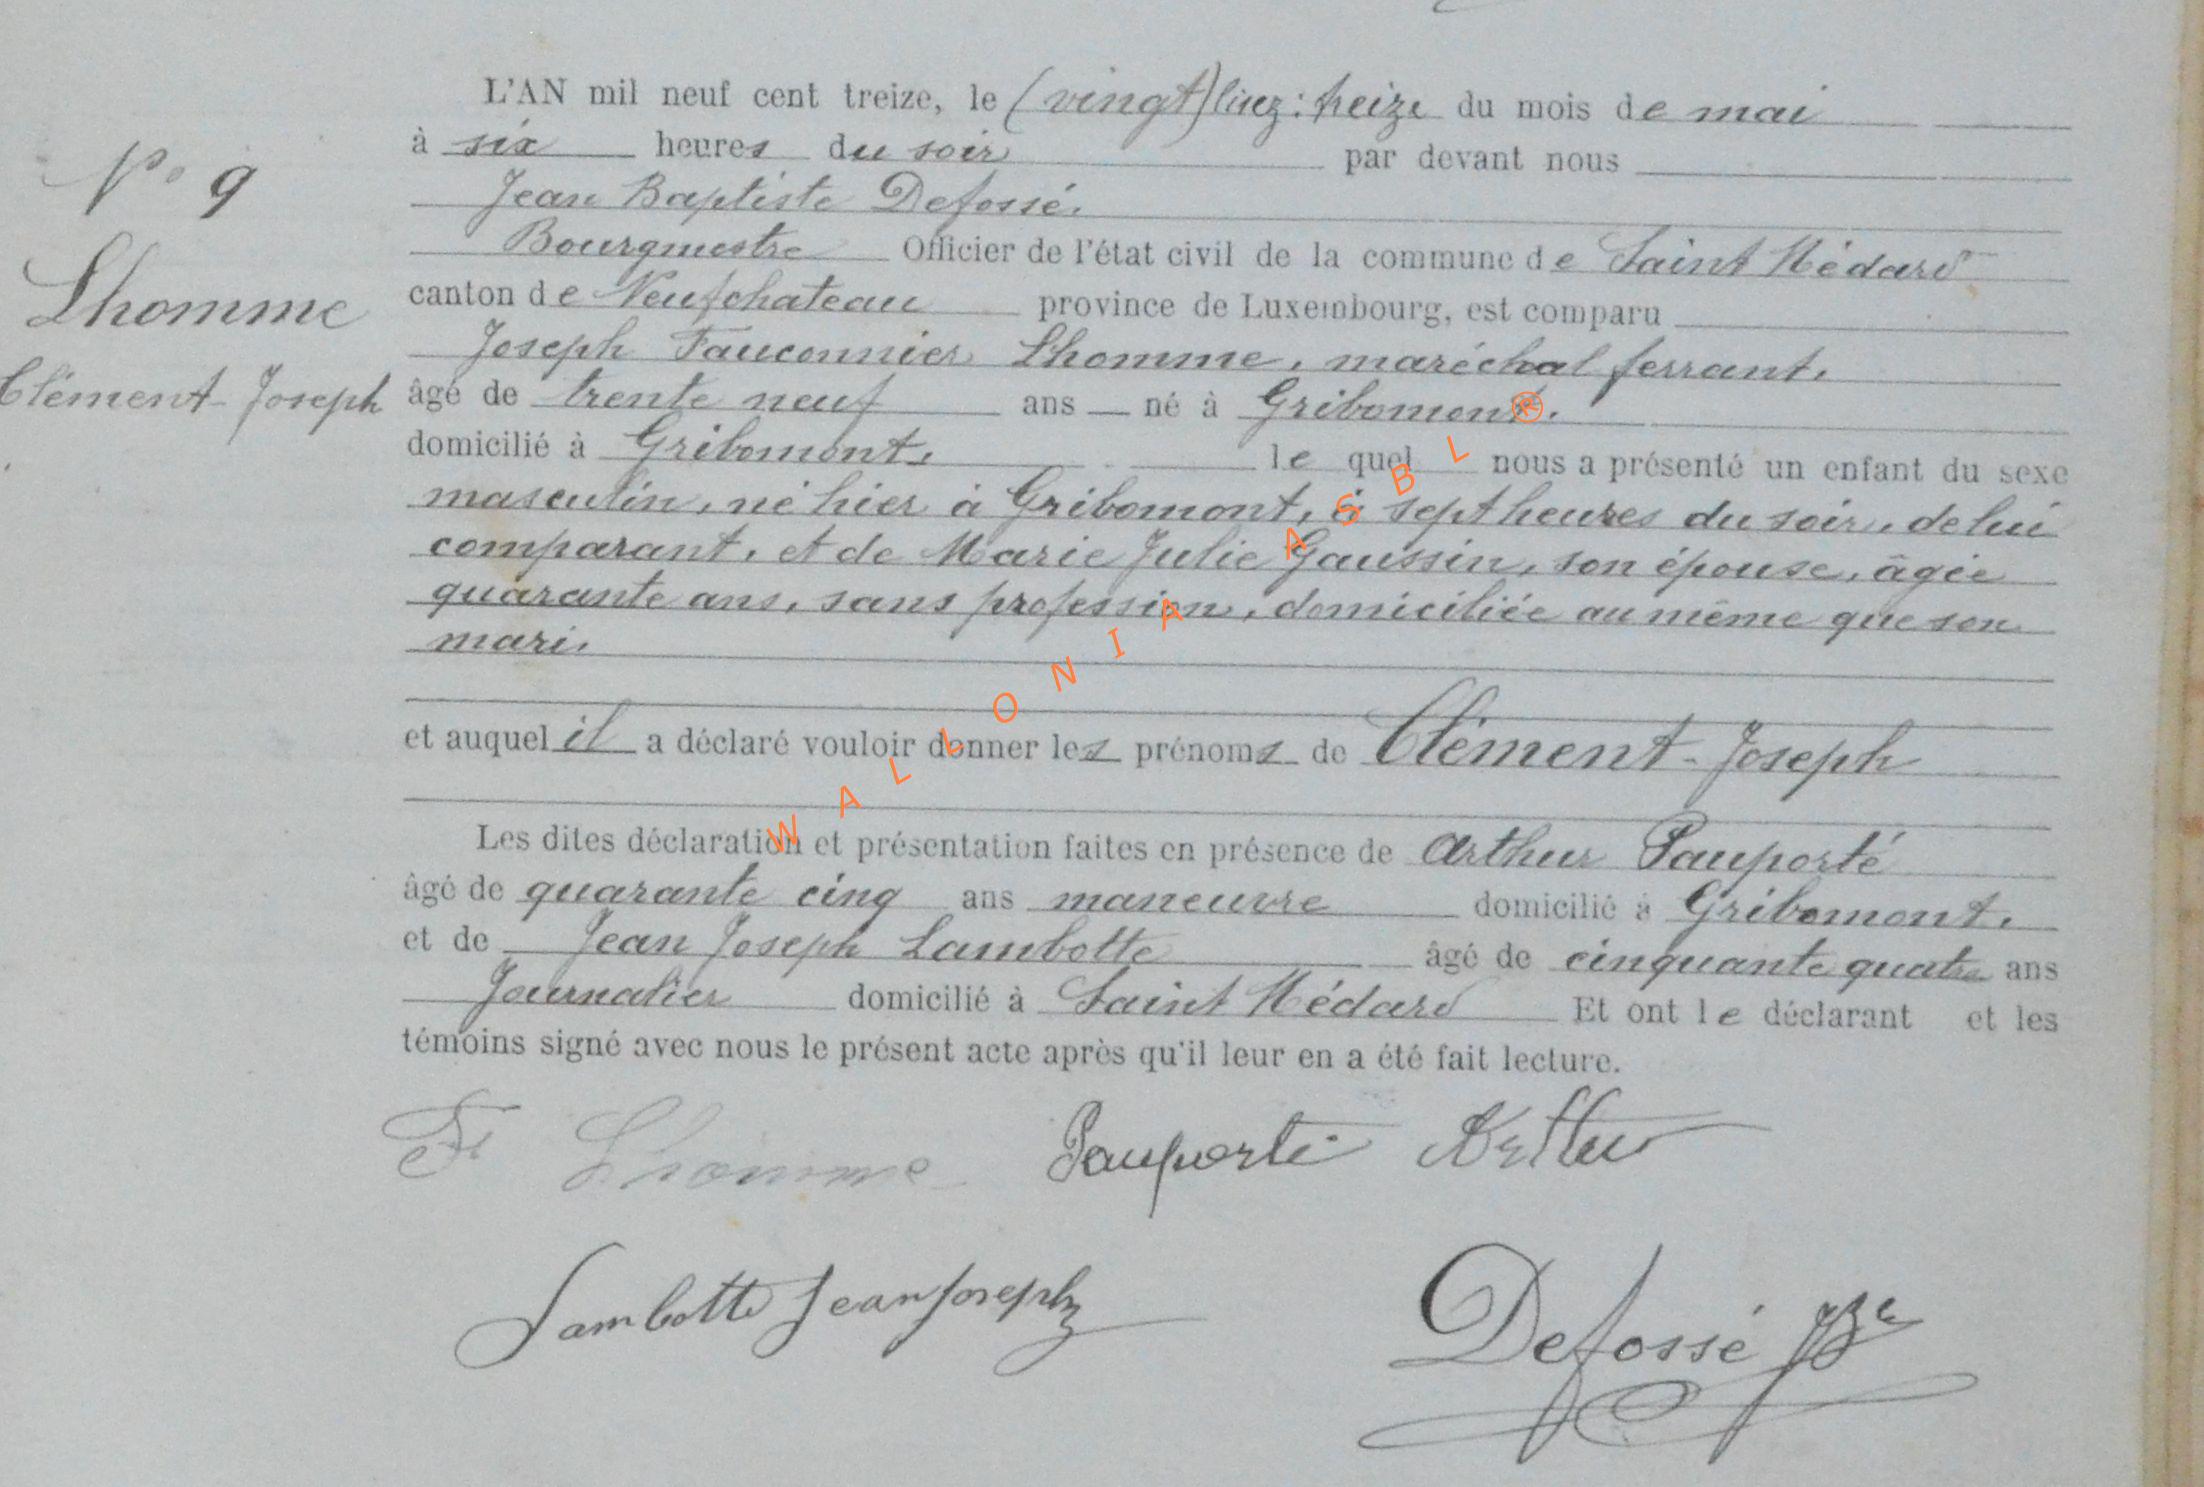 L'AN mil neuf cent treize, le (vingt) lisez : treize du mois de mai
à six heures du soir par devant nous
N° 9
Jean Baptiste Defossé,
Bourgmestre Officier de l'état civil de la commune de Saint Médard
Lhomme
canton de Neufchateau province de Luxembourg, est comparu
Joseph Fauconnier Lhomme, maréchal ferrant,
Clément-Joseph
âgé de trente neuf ans né à Gribomont,
domicilié à Gribomont, le quel nous a présenté un enfant du sexe
masculin, né hier à Gribomont, à sept heures du soir, de lui
comparant, et de Marie Julie Gaussin, son épouse, âgée
quarante ans, sans profession, domiciliée au même que son
mari,
et auquel il a déclaré vouloir donner les prénoms de Clément-Joseph
Les dites déclaration et présentation faites en présence de Arthur Pauporté
âgé de quarante cinq ans maneuvre domicilié à Gribomont,
et de Jean Joseph Lambotte âgé de cinquante quatre ans
Journalier domicilié à Saint Médard Et ont le déclarant et les
témoins signé avec nous le présent acte après qu'il leur en a été fait lecture.
F Lhomme Pauporté Arthur
Lambotte Jean Joseph
Defossé JBte
WALLONIA ASBL ®